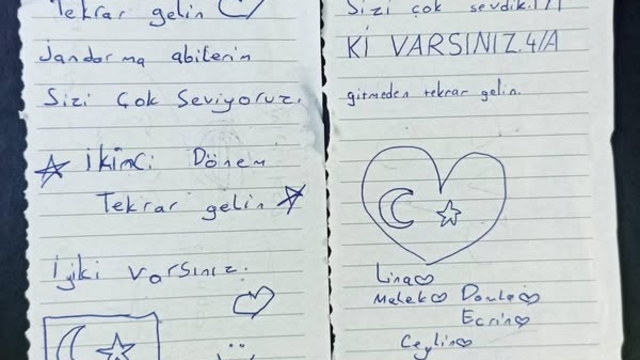 Tekrar gelin
Jandarma abilerim
Sizi Çok Seviyoruz.
İkinci Dönem
Tekrar gelin
İyiki varsınız.
Sizi çok sevdik.
Kİ VARSINIZ. 4/A
gitmeden tekrar gelin.
Lina
Melek
Ecrin
Ceylin